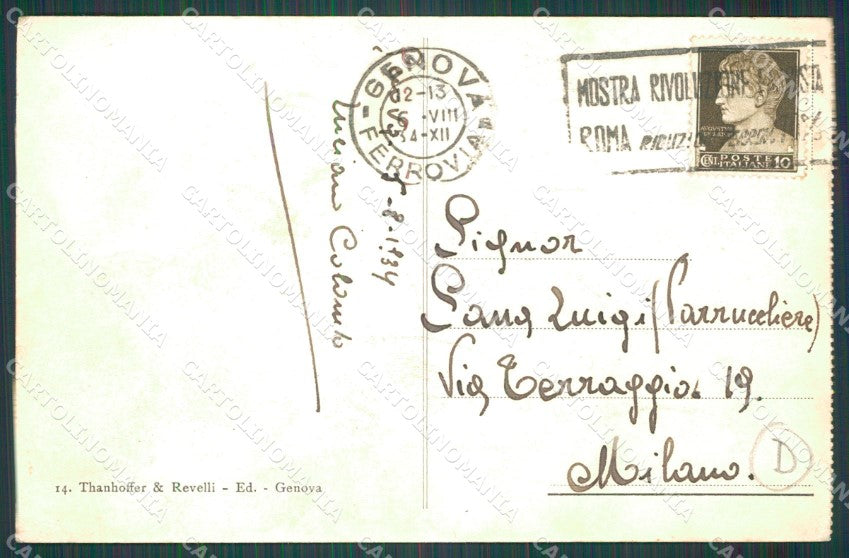 GENOVA
FERROVIA
12-13
5 VIII
34-XII
MOSTRA RIVOLUZIONE FASCISTA
ROMA
POSTE
ITALIANE
10
Luciano Colombo
5-8-1934
Signor
Pana Luigi (Parrucchiere)
Via Terraggio 19.
Milano.
D
14. Thanhoffer & Revelli - Ed. - Genova
CARTOLINOMANIA